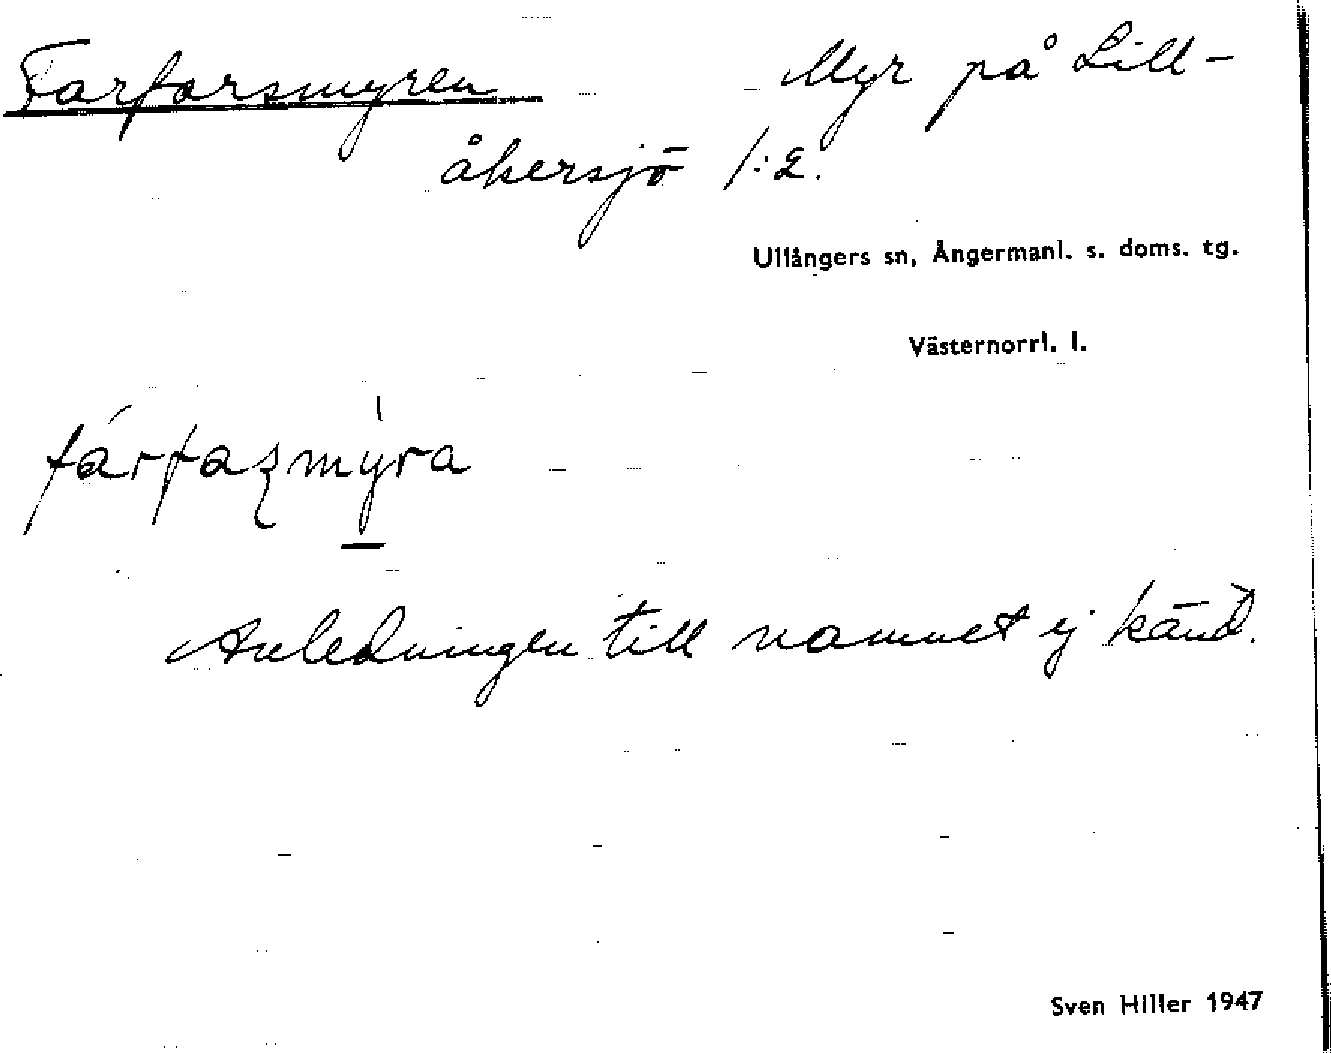 Farfarsmyren Myr på Lill-
åkersjö 1:2.
Ullångers sn, Ångermanl. s. doms. tg.
Västernorrl. l.
fárfaʂmỳra
Anledningen till namnet ej känd.
Sven Hiller 1947